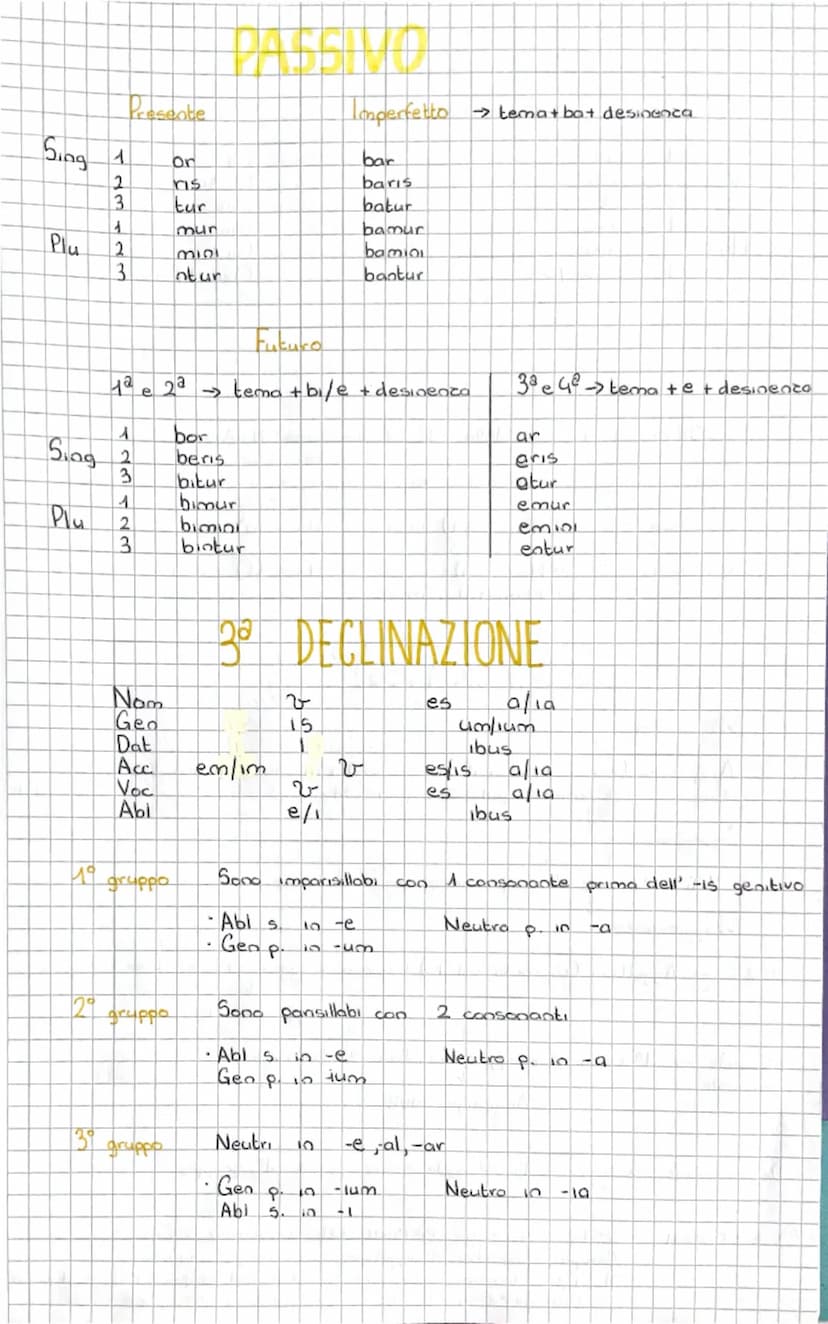 PASSIVO
Presente Imperfetto → tema+ba+ desinenza
Sing 1 or bar
2 ris baris
3 tur batur
1 mur bamur
Plu 2 mini bamini
3 ntur bantur
Futuro
1ª e 2ª → tema + bi/e + desinenza 3ª e 4ª → tema + e + desinenza
1 bor ar
Sing 2 beris eris
3 bitur etur
1 bimur emur
Plu 2 bimini emini
3 bintur entur
3ª DECLINAZIONE
Nom v es a/ia
Gen is um/ium
Dat i ibus
Acc em/im v es/is a/ia
Voc v es a/ia
Abl e/i ibus
1° gruppo Sono imparisillabi con 1 consonante prima dell' -is genitivo
· Abl s. in -e Neutro p. in -a
· Gen p. in -um
2° gruppo Sono parisillabi con 2 consonanti
· Abl s. in -e Neutro p. in -a
Gen p. in ium
3° gruppo Neutri in -e,-al,-ar
· Gen p. in -ium Neutro in -ia
Abl s. in -i